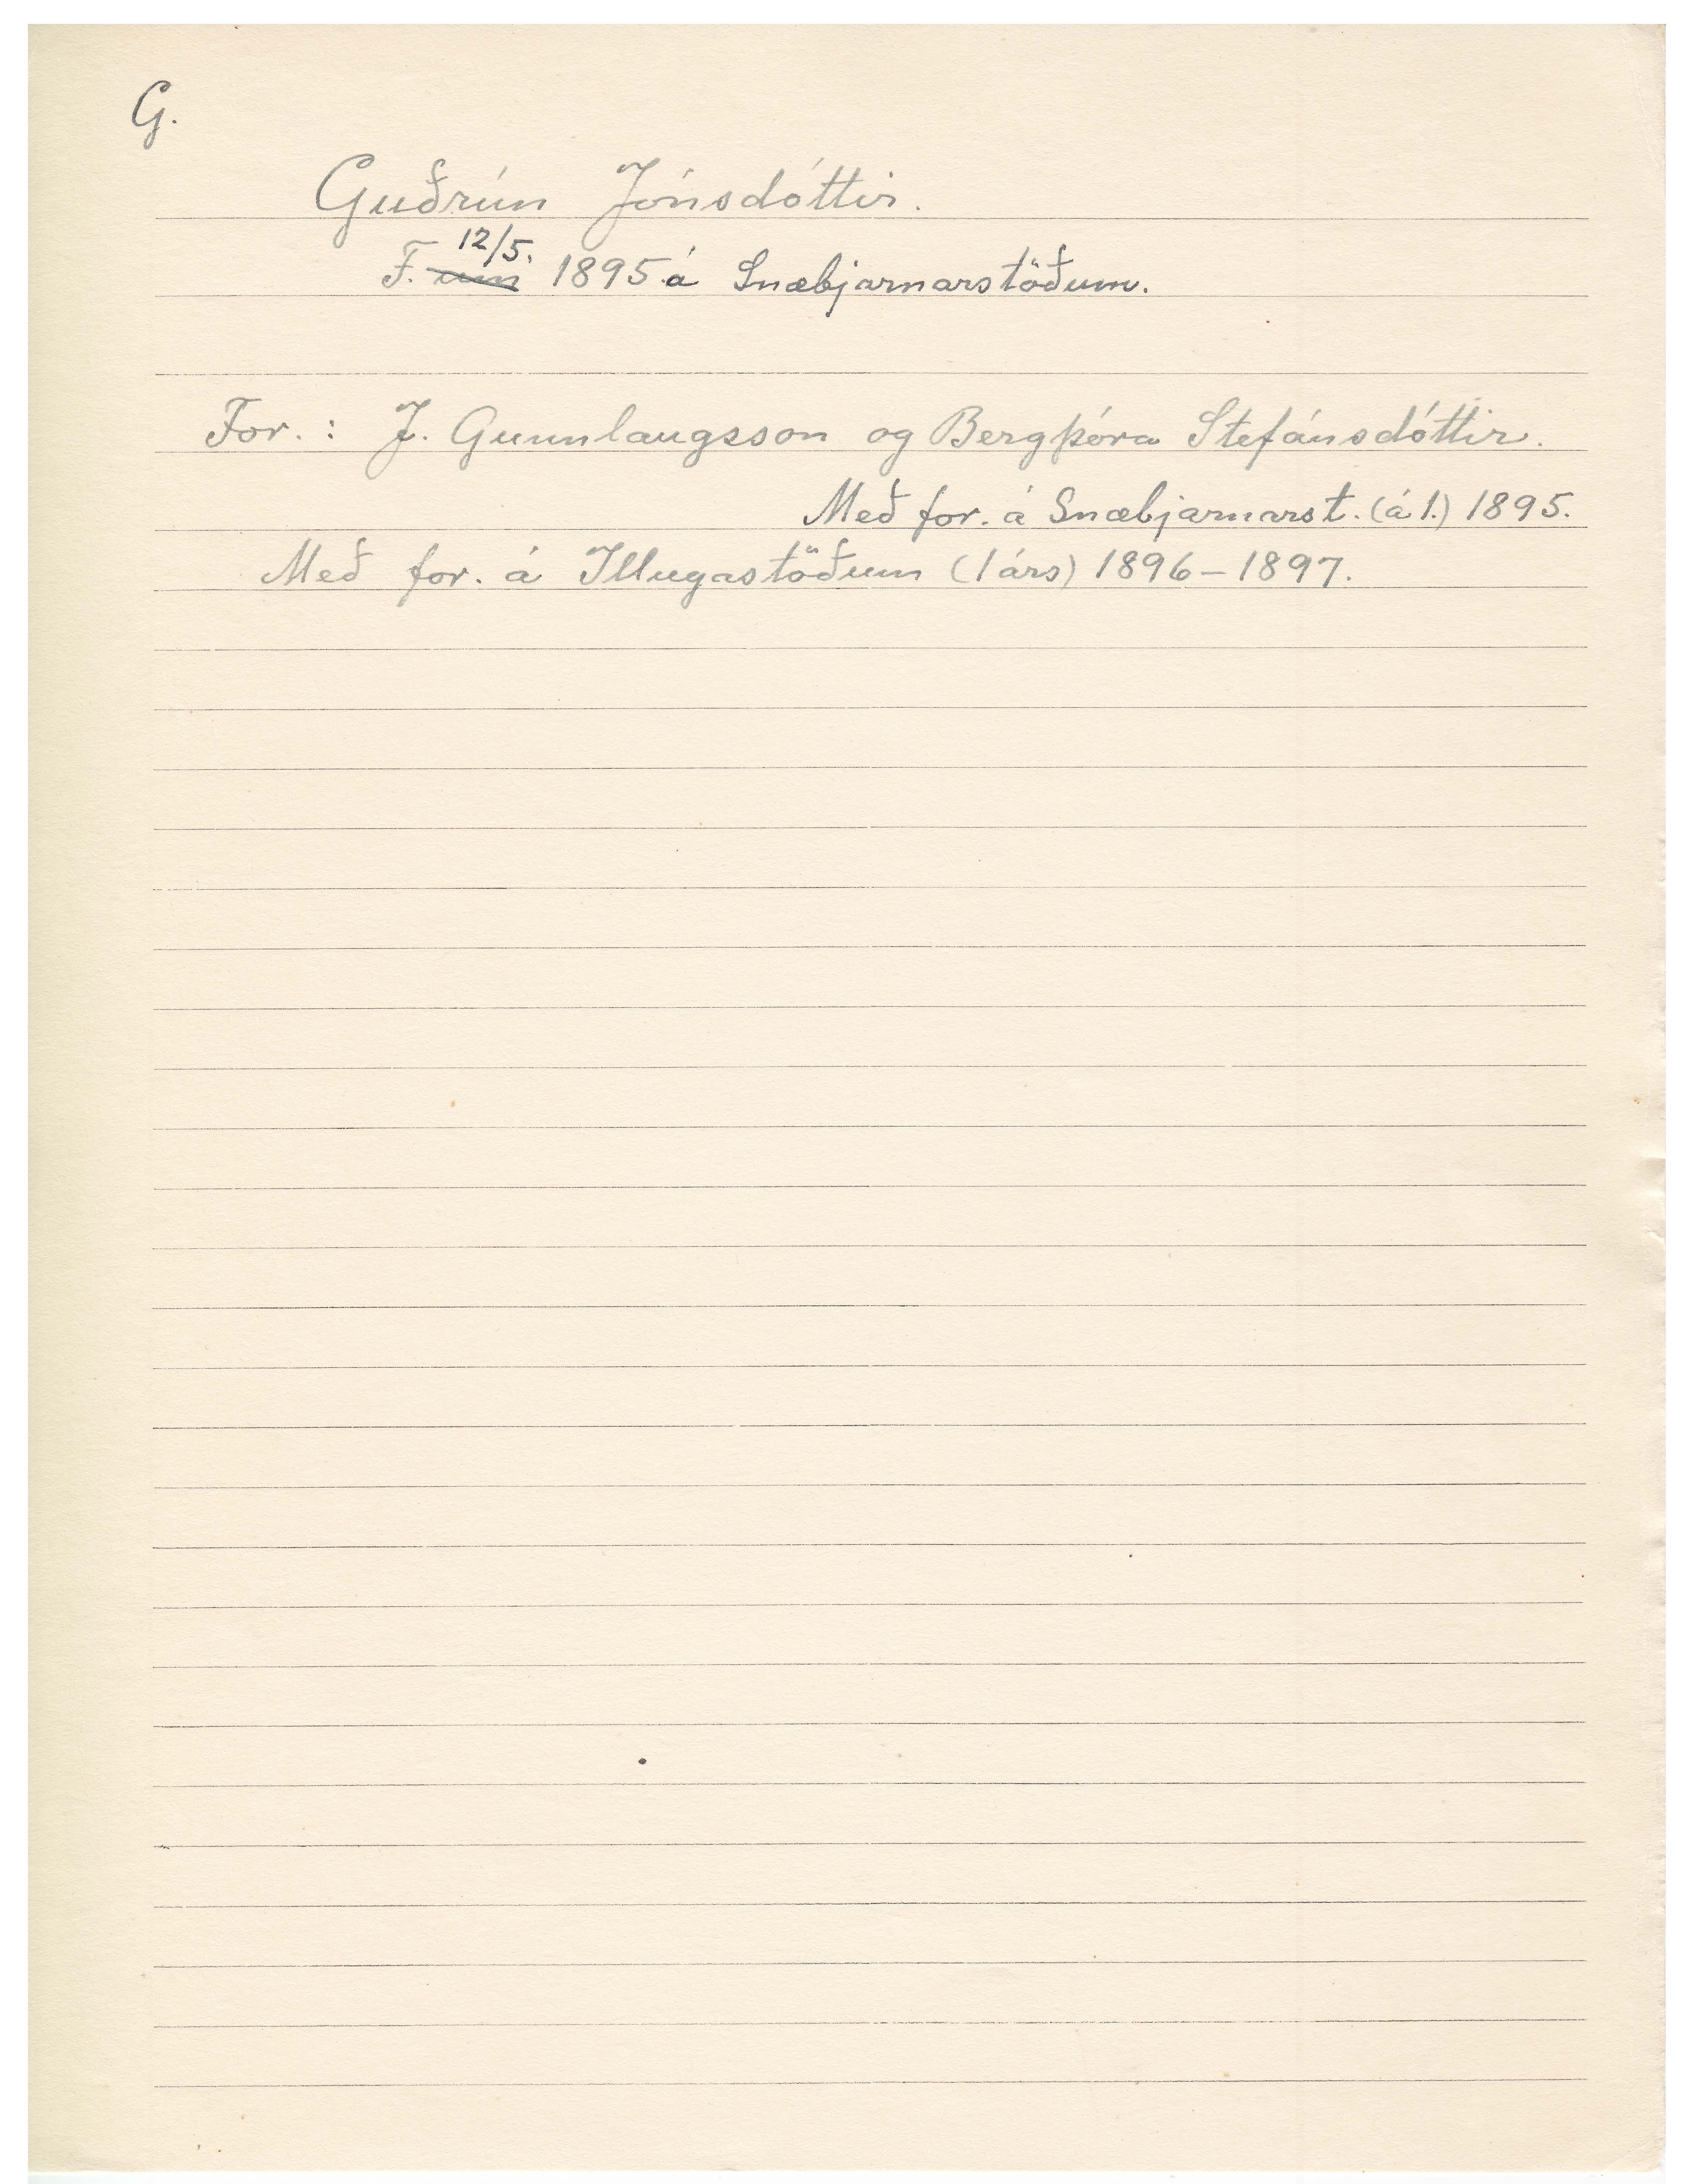 G.
Guðrún Jónsdóttir.
12/5.
F. um 1895 á Snæbjarnarstöðum.
For.: J. Gunnlaugsson og Bergþóra Stefánsdóttir.
Með for. á Snæbjarnarst. (á 1.) 1895.
Með for. á Illugastöðum (1 árs) 1896-1897.